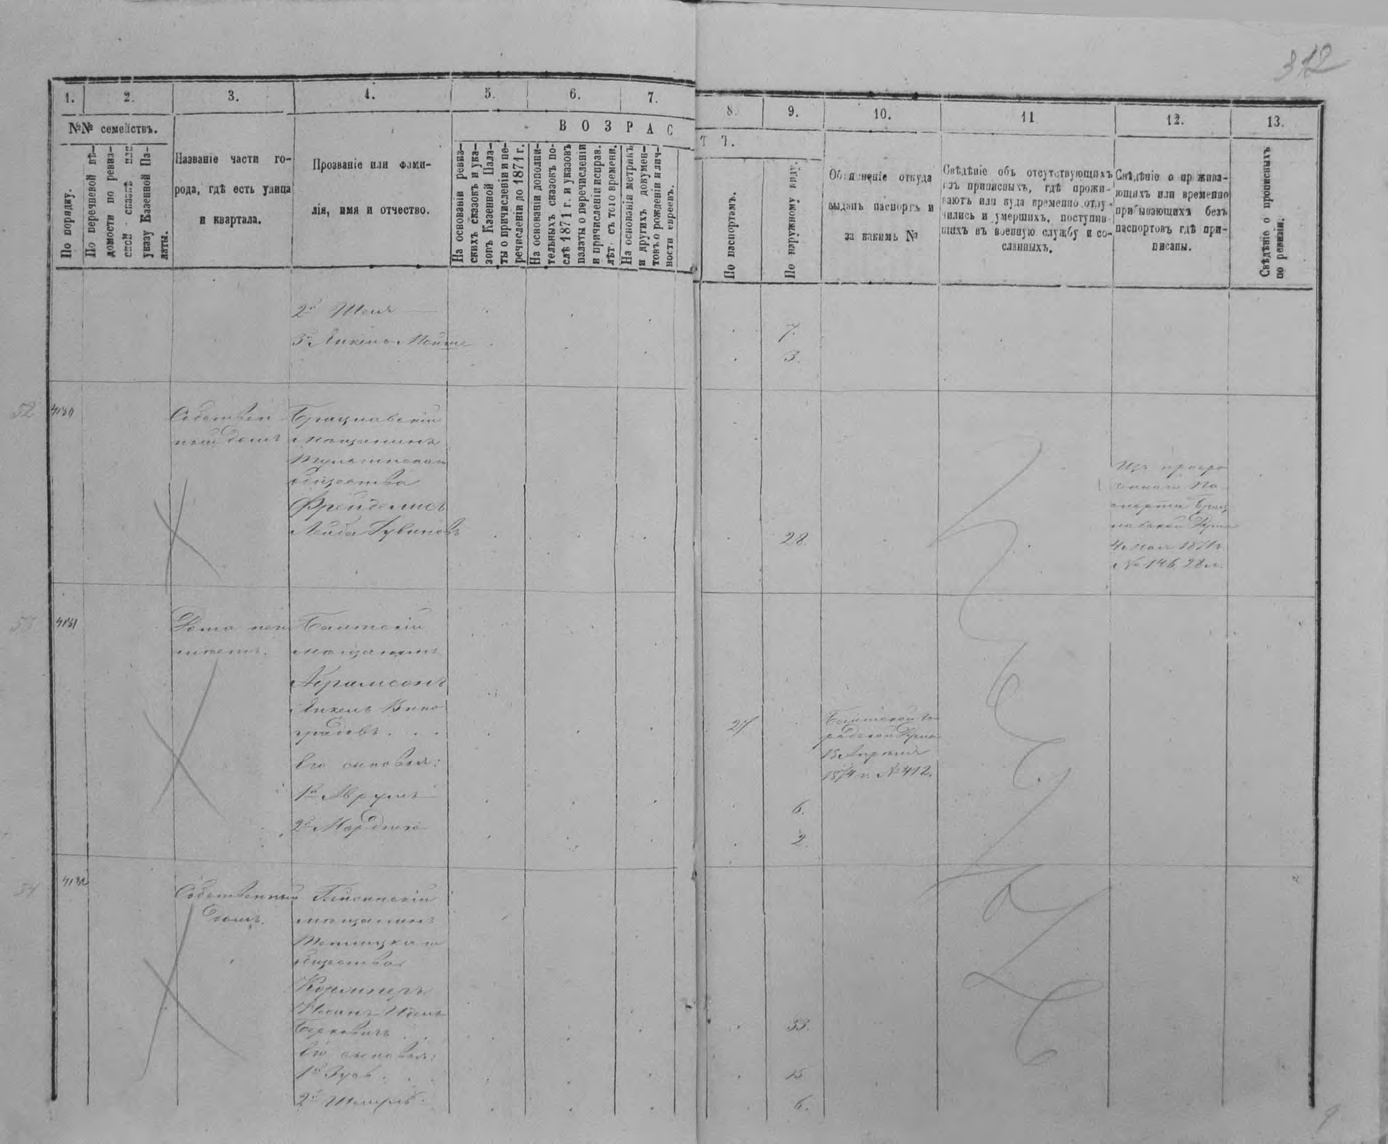 312
1.
2.
3.
4.
5.
6.
7.
8.
9.
10.
11
12.
13.
№№ семействъ.
По порядку.
По перечневой вѣ-
домости по ревиз-
ской сказкѣ или
указу Казенной Па-
латы.
Названіе части го-
рода, гдѣ есть улица
и квартала.
Прозваніе или фами-
лія, имя и отчество.
ВОЗРАС
Т Ъ.
На основаніи ревиз-
скихъ сказокъ и ука-
зовъ Казенной Пала-
ты о причисленіи и пе-
речисленіи до 1871 г.
На основаніи дополни-
тельныхъ сказокъ по-
слѣ 1871 г. и указовъ
палаты о перечисленіи
и причисленіи исправ.
лѣт. съ того времени.
На основаніи метрикъ
и другихъ докумен-
товъ о рожденіи и лич-
ности евреевъ.
По паспортамъ.
По наружному виду.
Объясненіе откуда
выданъ паспортъ и
за какимъ №
Свѣдѣніе объ отсутствующихъ
изъ приписныхъ, гдѣ прожи-
ваютъ или куда временно отлу-
чились и умершихъ, поступив-
шихъ въ военную службу и со-
сланныхъ.
Свѣдѣніе о прожива-
ющихъ или временно
прибывающихъ безъ
паспортовъ гдѣ при-
писаны.
Свѣдѣніе о прописныхъ
по ревизіи.
2й
7.
3й Янкель Мойше
3.
52
4130
Собствен
ный домъ
Брацлавскій
мѣщанинъ
Тульчинскаго
общества
Фрейделисъ
Лейба Рувиновъ
28.
Изъ просро
ченнаго па
спорта Брац
лавской Думы
4 мая 1871 г.
№ 146 28 л.
53
4131
Балтскій
мѣщанинъ
Абрамсонъ
Янкель
Его сыновья:
1й Аврумъ
2й Мардко
27
6.
2
Балтской го
родской Думы
15 Апрѣля
1874 г. № 412.
54
4132
Собственный
домъ.
Гайсинскій
мѣщанинъ
Теплицкаго
общества
Берковъ
Его сыновья:
1й Зусь
33.
15
6.